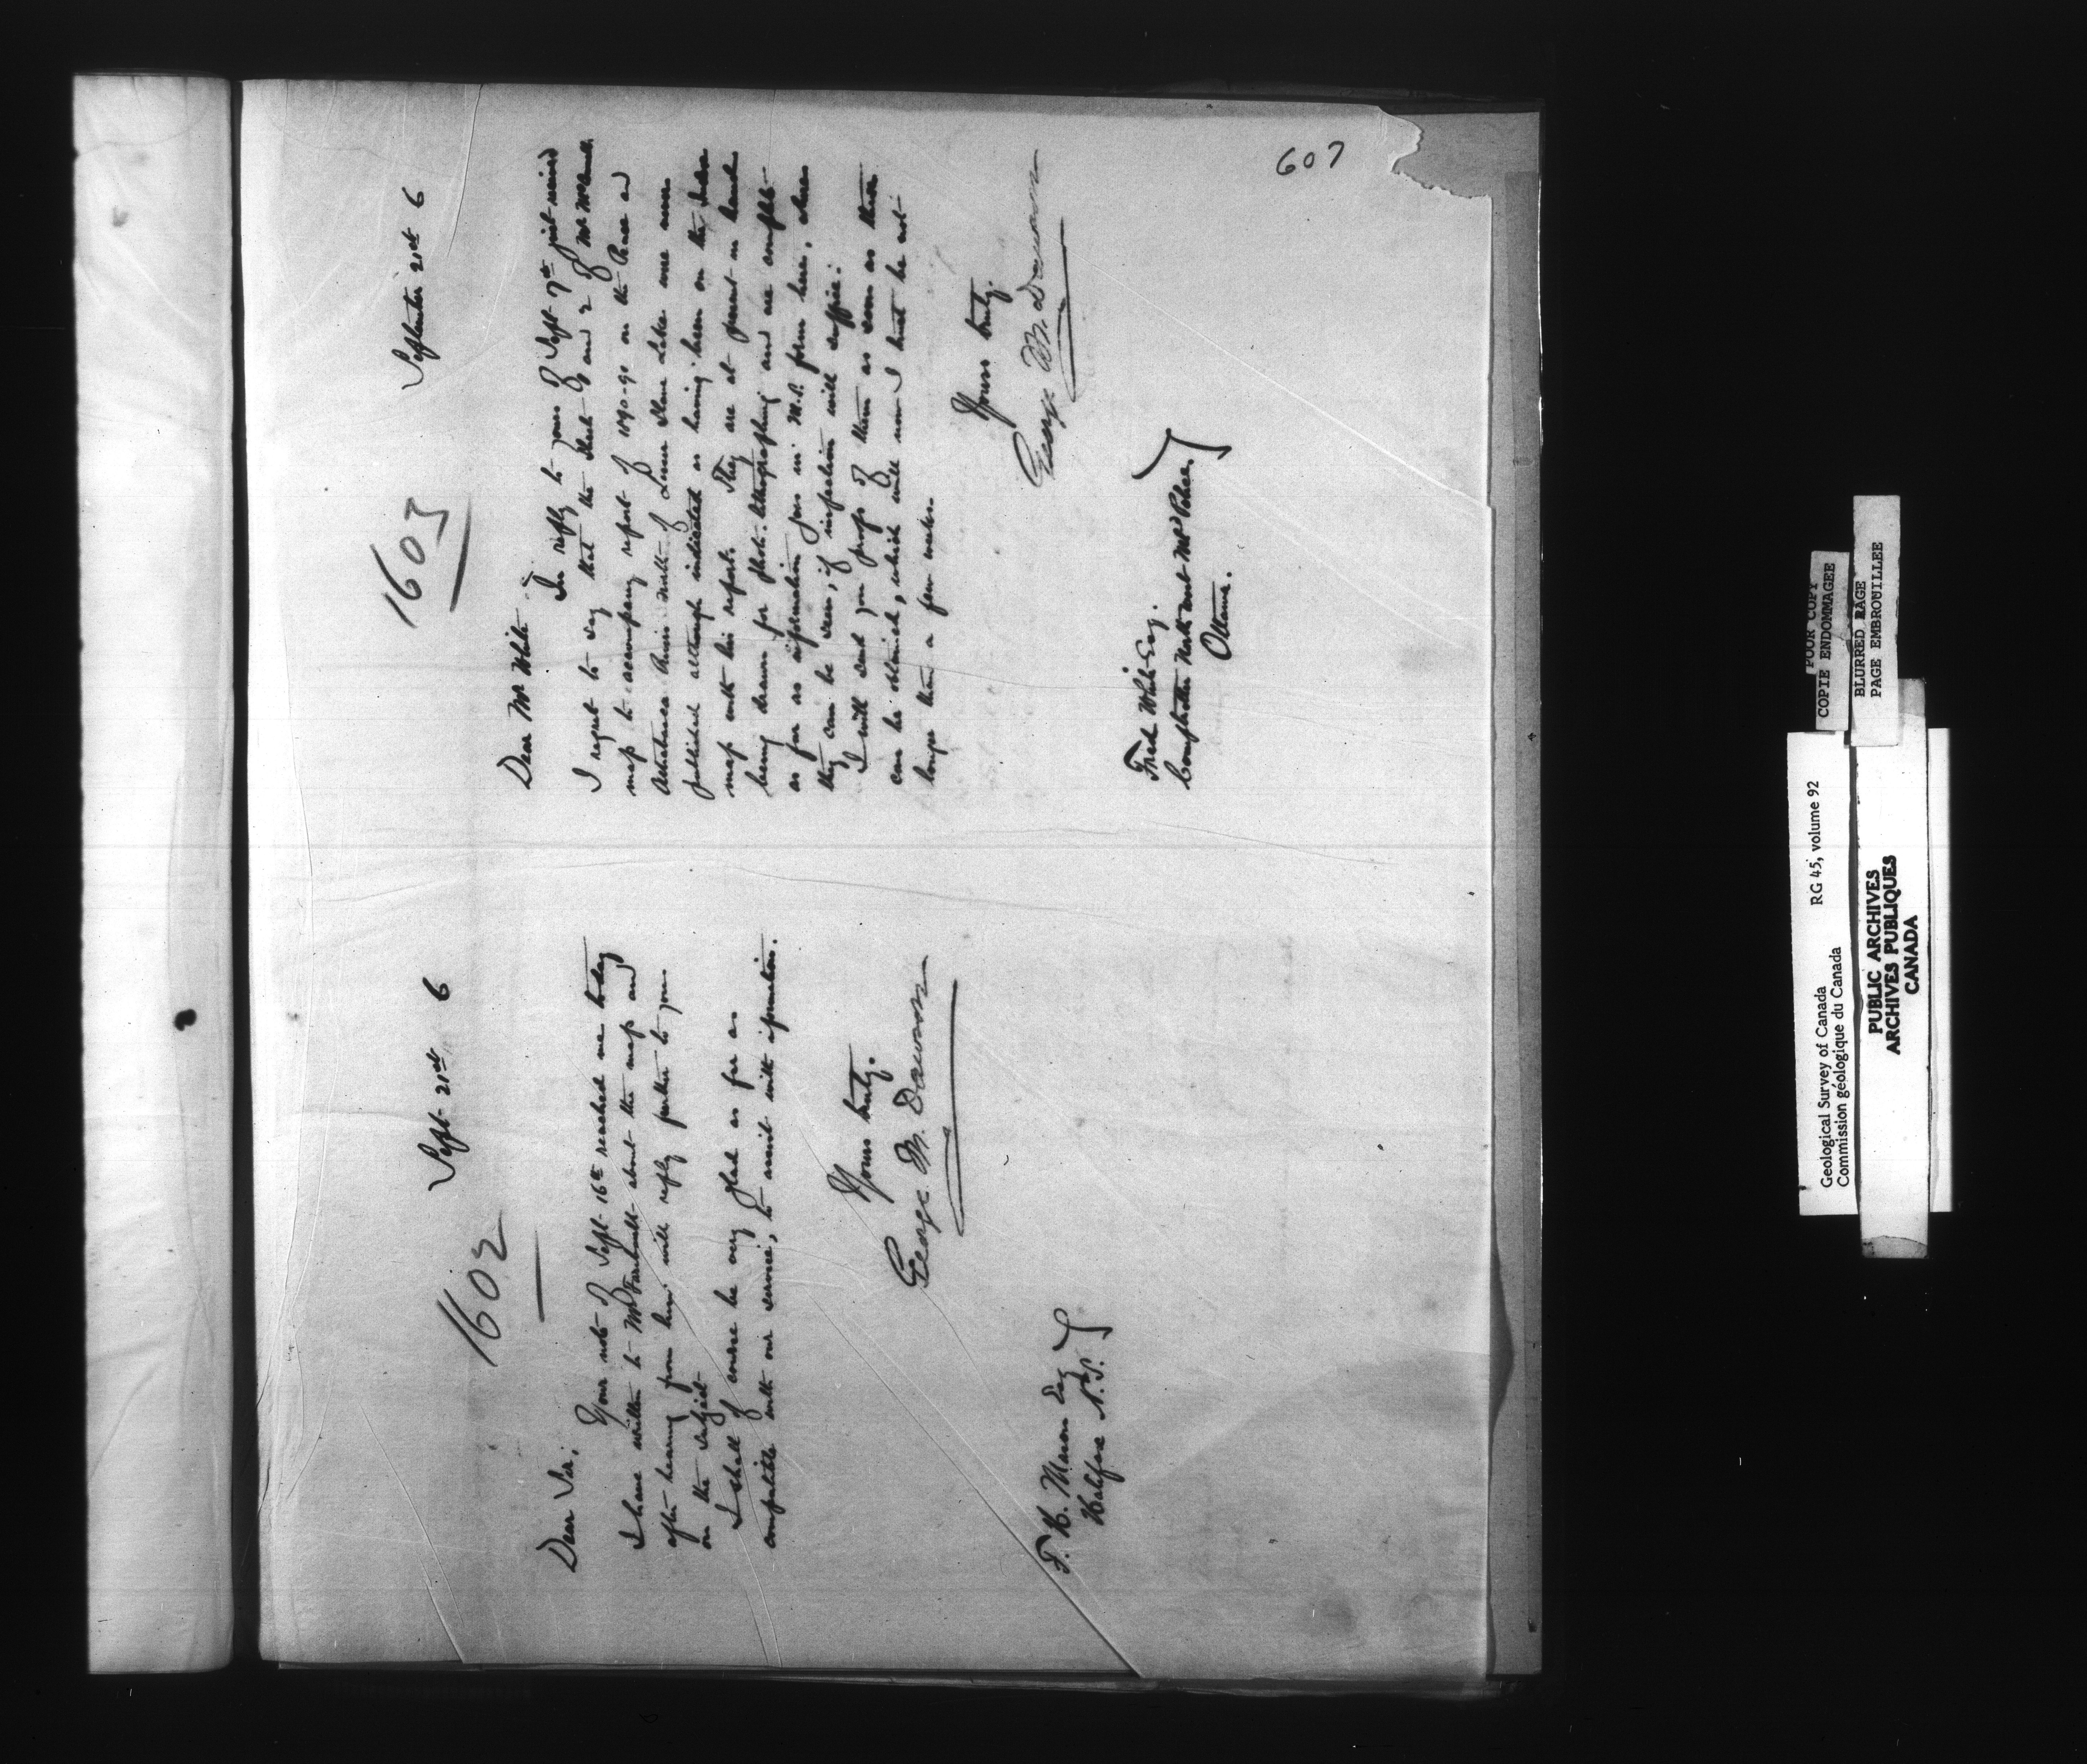 607
1602
Sept 21st 6
Dear Sir,
Your note of Sept 16th reached me today
I have written to Mr Faribault about the map and
after hearing from him will reply further to you
on the subject
I shall of course be very glad as far as
compatible with our service, to assist with information.
Yours truly.
George M. Dawson
F. H. Mason Esq
Halifax N.S.
1603
September 21st 6
Dear Mr White
In reply to yours of Sept 7th just received
I regret to say that the sheets 1 and 2 of Mr McConnell's
map to accompany report of 1890-90 on the Peace and
Athabasca Rivers north of Lesser Slave Lake were never
published although indicated as having been on the Index
map with his report. They are at present in hand
being drawn for photo-lithographing and are complete
as far as information goes in M.S. form here, where
they can be seen, if inspection will suffice.
I will send you proofs of them as soon as these
can be obtained, which will now I trust be not
longer than a few weeks.
Yours truly.
George M. Dawson
Fred White Esq.
Comptroller North West Mtd Police.
Ottawa.
Geological Survey of Canada RG 45, volume 92
Commission géologique du Canada
PUBLIC ARCHIVES
ARCHIVES PUBLIQUES
CANADA
POOR COPY
COPIE ENDOMMAGEE
BLURRED PAGE
PAGE EMBROUILLEE